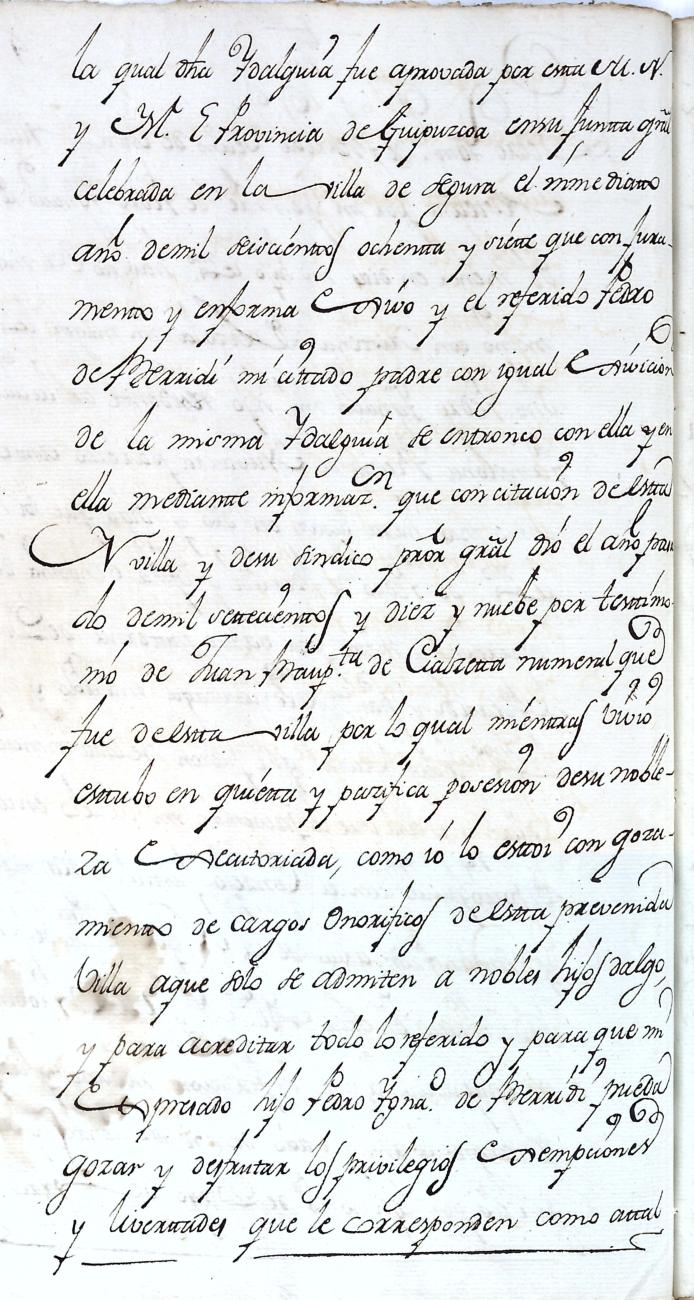 la qual dha Ydalguia fue aprovada por estta M. N.
y M. L Provincia de Guipuzcoa ensu Juntta grãl
celebrada en la villa de segura el inmediatto
año demil seiscienttos ochentta y siette que con Jura-
mentto y enforma Exivio y el referido Pedro
de Berridi mi cittado padre con igual Exivicion
de la misma Ydalguia se entronco con ella y en
ella mediantte informaz.on que con citacion de estta
N villa y desu sindico pror grãl dió el año pasa
do demil settecienttos y diez y nuebe por testtimo-
nio de Juan Baup.tta de Ciabretta numeral que
fue de estta villa por lo qual mienttras vivio
esttubo en quietta y pazifica posesion desu noble-
za Executoriada, como io lo esttoi con goza-
mientto de cargos Onorificos de estta prevenida
Villa aque solo se admiten a nobles hijos dalgo,
y para acreditar todo lo referido y para que mi
Expresado hijo Pedro Ygna.o de Berridi pueda
gozar y desfrutar los privilegios Exempciones
y liverttades que le corresponden como attal